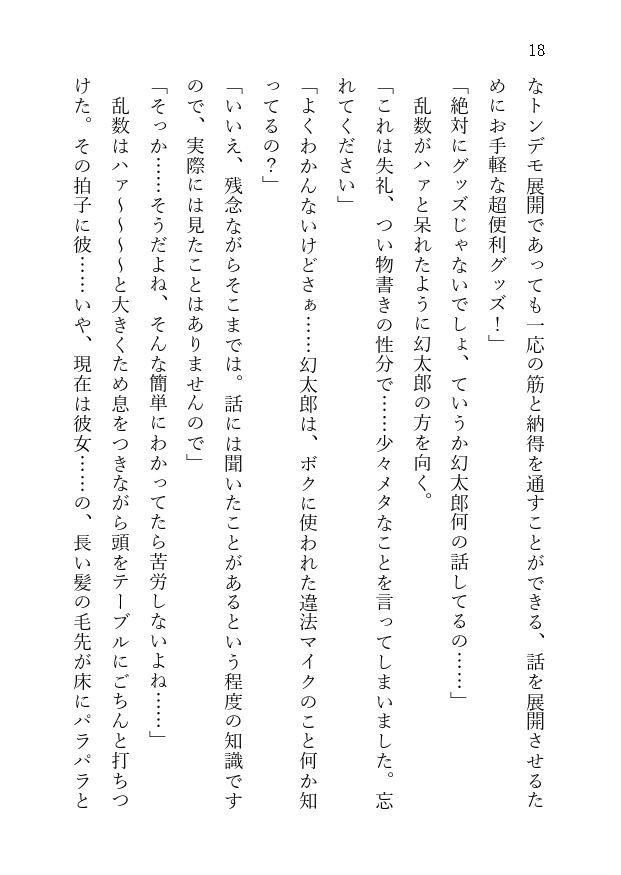 18
なトンデモ展開であっても一応の筋と納得を通すことができる、話を展開させるた
めにお手軽な超便利グッズ！」
「絶対にグッズじゃないでしょ、ていうか幻太郎何の話してるの……」
乱数がハァと呆れたように幻太郎の方を向く。
「これは失礼、つい物書きの性分で……少々メタなことを言ってしまいました。忘
れてください」
「よくわかんないけどさぁ……幻太郎は、ボクに使われた違法マイクのこと何か知
ってるの？」
「いいえ、残念ながらそこまでは。話には聞いたことがあるという程度の知識です
ので、実際には見たことはありませんので」
「そっか……そうだよね、そんな簡単にわかってたら苦労しないよね……」
乱数はハァ～～～～と大きくため息をつきながら頭をテーブルにごちんと打ちつ
けた。その拍子に彼……いや、現在は彼女……の、長い髪の毛先が床にパラパラと